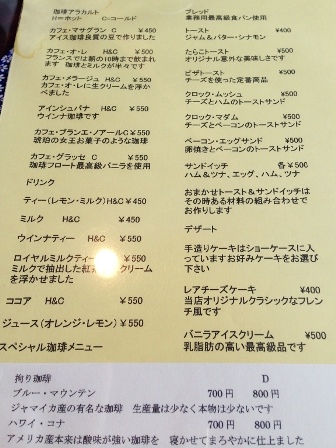 珈琲アラカルト
H=ホット C=コールド
カフェ・マサグラン C ¥450
アイス珈琲良質の豆で作りました
カフェ・オ・レ H&C ¥500
フランスでは朝の10時まで飲まれ
ます 珈琲とミルクが半々です
カフェ・メラージュ H&C ¥550
カフェ・オ・レに生クリームを浮か
べました
アインシュパナ H&C ¥550
ウィンナ珈琲です
カフェ・ブランエ・ノアールC¥550
琥珀の女王お菓子のような珈琲
カフェ・グラッセ C ¥550
珈琲フロート最高級バニラを使用
ドリンク
ティー(レモン・ミルク)H&C¥450
ミルク H&C ¥450
ウインナティー H&C ¥550
ロイヤルミルクティー ¥550
ミルクで抽出した紅 クリーム
を浮かせました
ココア H&C ¥550
ジュース(オレンジ・レモン) ¥550
スペシャル珈琲メニュー
ブレッド
業務用最高級食パン使用
トースト ¥400
ジャム&バター・シナモン
たらこトースト ¥500
オリジナル意外な美味しさです
ピザトースト ¥500
チーズを使った定番商品
クロック・ムッシュ ¥500
チーズとハムのトーストサンド
クロック・マダム ¥500
チーズとベーコンのトーストサンド
ベーコン・エッグサンド ¥500
卵焼きとベーコンのトーストサンド
サンドイッチ 各¥500
ハム&ツナ、エッグ、ハム、ツナ
おまかせトースト&サンドイッチは
その時ある材料の組み合わせで
お作りします
デザート
手造りケーキはショーケースに入
っていますお好みケーキをお選び
下さい
レアチーズケーキ ¥400
当店オリジナルクラシックなフレン
チ風です
バニラアイスクリーム ¥500
乳脂肪の高い最高級品です
拘り珈琲 D
ブルー・マウンテン 700円 800円
ジャマイカ産の有名な珈琲 生産量は少なく本物は少ないです
ハワイ・コナ 700円 800円
アメリカ産本来は酸味が強い珈琲を 寝かせてまろやかに仕上ました